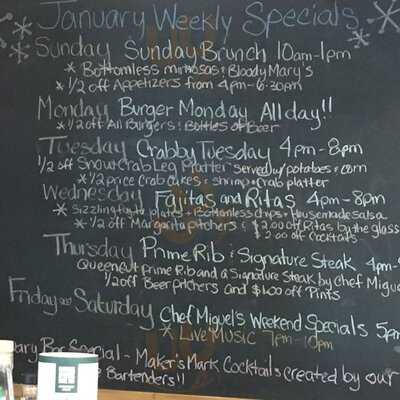 January Weekly Specials
Sunday Sunday Brunch 10am-1pm
* Bottomless mimosas & Bloody Mary's
* 1/2 off Appetizers from 4pm-6:30pm
Monday Burger Monday All day!!
* 1/2 off All Burgers & Bottles of Beer
Tuesday Crabby Tuesday 4pm-8pm
1/2 off Snow Crab Leg Platter served w/ potatoes & corn
* 1/2 price crab cakes & shrimp & crab platter
Wednesday Fajitas and Ritas 4pm-8pm
* Sizzling fajita plates & Bottomless chips & Housemade salsa
* 1/2 off Margarita pitchers & $2.00 off Ritas by the glass
$2.00 off cocktails
Thursday Prime Rib & Signature Steak 4pm-
Queen cut prime Rib and a Signature Steak by Chef Migue
1/2 off Beer pitchers and $1.00 off Pints
Friday and Saturday Chef Miguel's Weekend Specials 5pm
* Live Music 7pm-10pm
uary Bar Special - Maker's Mark Cocktails created by our
Bartenders!!